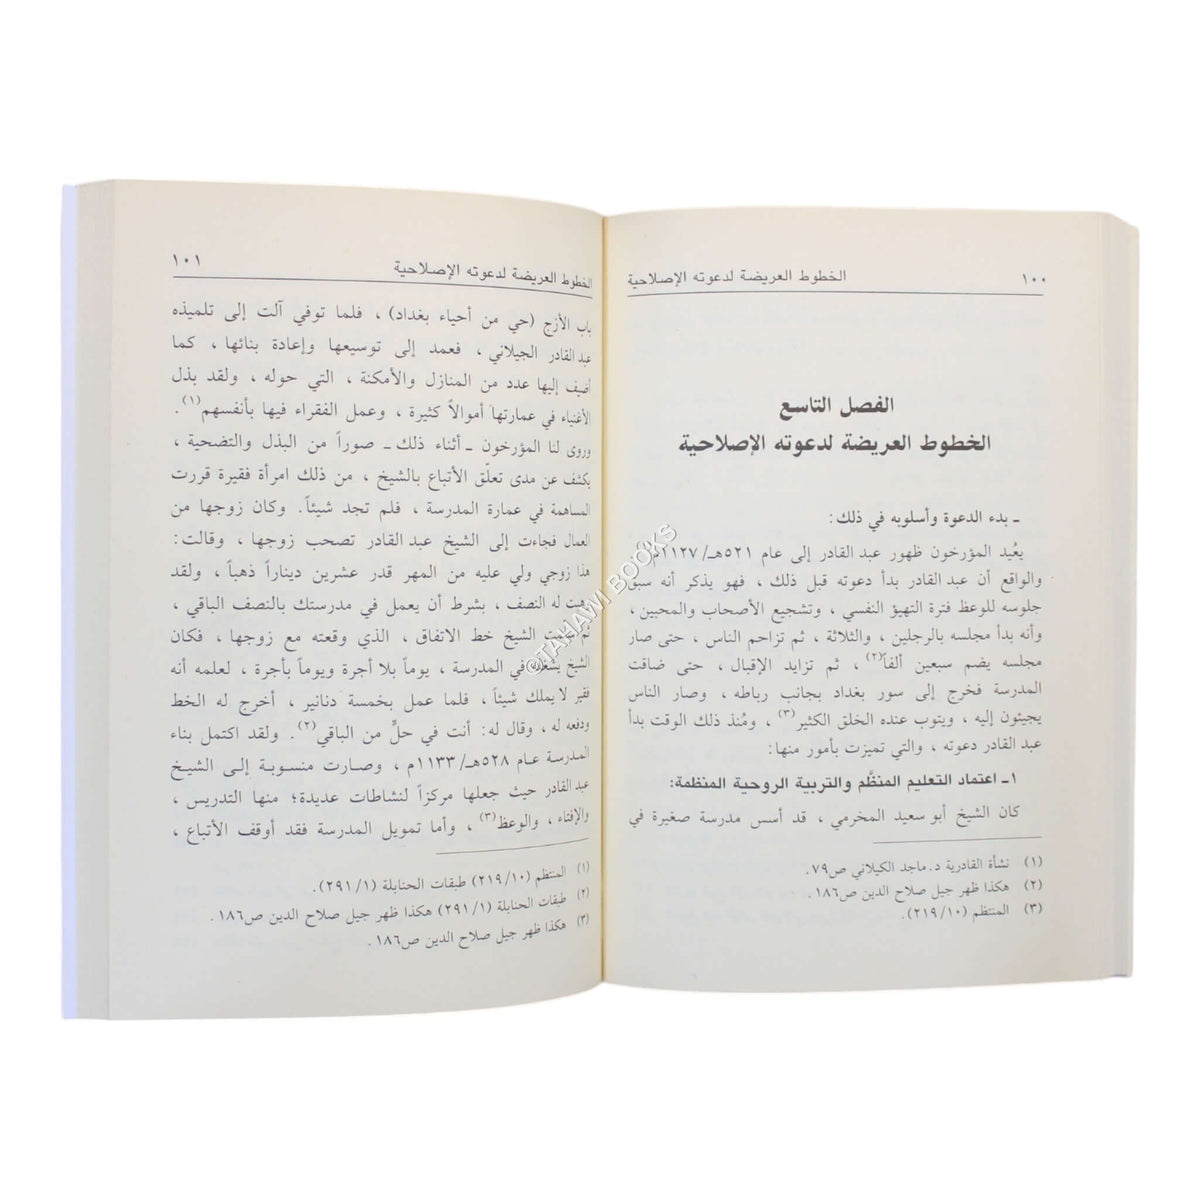 ١٠٠
الخطوط العريضة لدعوته الإصلاحية
الفصل التاسع
الخطوط العريضة لدعوته الإصلاحية
ـ بدء الدعوة وأسلوبه في ذلك:
يعُيد المؤرخون ظهور عبد القادر إلى عام ٥٢١هـ/١١٢٧م
والواقع أن عبد القادر بدأ دعوته قبل ذلك ، فهو يذكر أنه سبق
جلوسه للوعظ فترة التهيؤ النفسي ، وتشجيع الأصحاب والمحبين ،
وأنه بدأ مجلسه بالرجلين ، والثلاثة ، ثم تزاحم الناس ، حتى صار
مجلسه يضم سبعين ألفاً(٢) ، ثم تزايد الإقبال ، حتى ضاقت
المدرسة فخرج إلى سور بغداد بجانب رباطه ، وصار الناس
يجيئون إليه ، ويتوب عنده الخلق الكثير(٣) ، ومُنذ ذلك الوقت بدأ
عبد القادر دعوته ، والتي تميزت بأمور منها:
١ـ اعتماد التعليم المنظَّم والتربية الروحية المنظمة:
كان الشيخ أبو سعيد المخرمي ، قد أسس مدرسة صغيرة في
(١) نشأة القادرية د. ماجد الكيلاني ص٧٩.
(٢) هكذا ظهر جيل صلاح الدين ص١٨٦ .
(٣) المنتظم (١٠/ ٢١٩).
الخطوط العريضة لدعوته الإصلاحية
١٠١
باب الأزج (حي من أحياء بغداد) ، فلما توفي آلت إلى تلميذه
عبد القادر الجيلاني ، فعمد إلى توسيعها وإعادة بنائها ، كما
أضيف إليها عدد من المنازل والأمكنة ، التي حوله ، ولقد بذل
الأغنياء في عمارتها أموالاً كثيرة ، وعمل الفقراء فيها بأنفسهم(١).
وروى لنا المؤرخون ـ أثناء ذلك ـ صوراً من البذل والتضحية ،
يكشف عن مدى تعلّق الأتباع بالشيخ ، من ذلك امرأة فقيرة قررت
المساهمة في عمارة المدرسة ، فلم تجد شيئاً. وكان زوجها من
العمال فجاءت إلى الشيخ عبد القادر تصحب زوجها ، وقالت:
هذا زوجي ولي عليه من المهر قدر عشرين ديناراً ذهباً ، ولقد
وهبت له النصف ، بشرط أن يعمل في مدرستك بالنصف الباقي ،
ثم الشيخ خط الاتفاق ، الذي وقعته مع زوجها ، فكان
الشيخ يشغله في المدرسة ، يوماً بلا أجرة ويوماً بأجرة ، لعلمه أنه
فقير لا يملك شيئاً ، فلما عمل بخمسة دنانير ، أخرج له الخط
ودفعه له ، وقال له: أنت في حلٍّ من الباقي(٢). ولقد اكتمل بناء
المدرسة عام ٥٢٨هـ/١١٣٣م ، وصارت منسوبة إلى الشيخ
عبد القادر حيث جعلها مركزاً لنشاطات عديدة؛ منها التدريس ،
والإفتاء ، والوعظ(٣) ، وأما تمويل المدرسة فقد أوقف الأتباع ،
(١) المنتظم (١٠/ ٢١٩) طبقات الحنابلة (١/ ٢٩١).
(٢) طبقات الحنابلة (١/ ٢٩١) هكذا ظهر جيل صلاح الدين ص١٨٦ .
(٣) هكذا ظهر جيل صلاح الدين ص١٨٦ .
©TAHAWI BOOKS